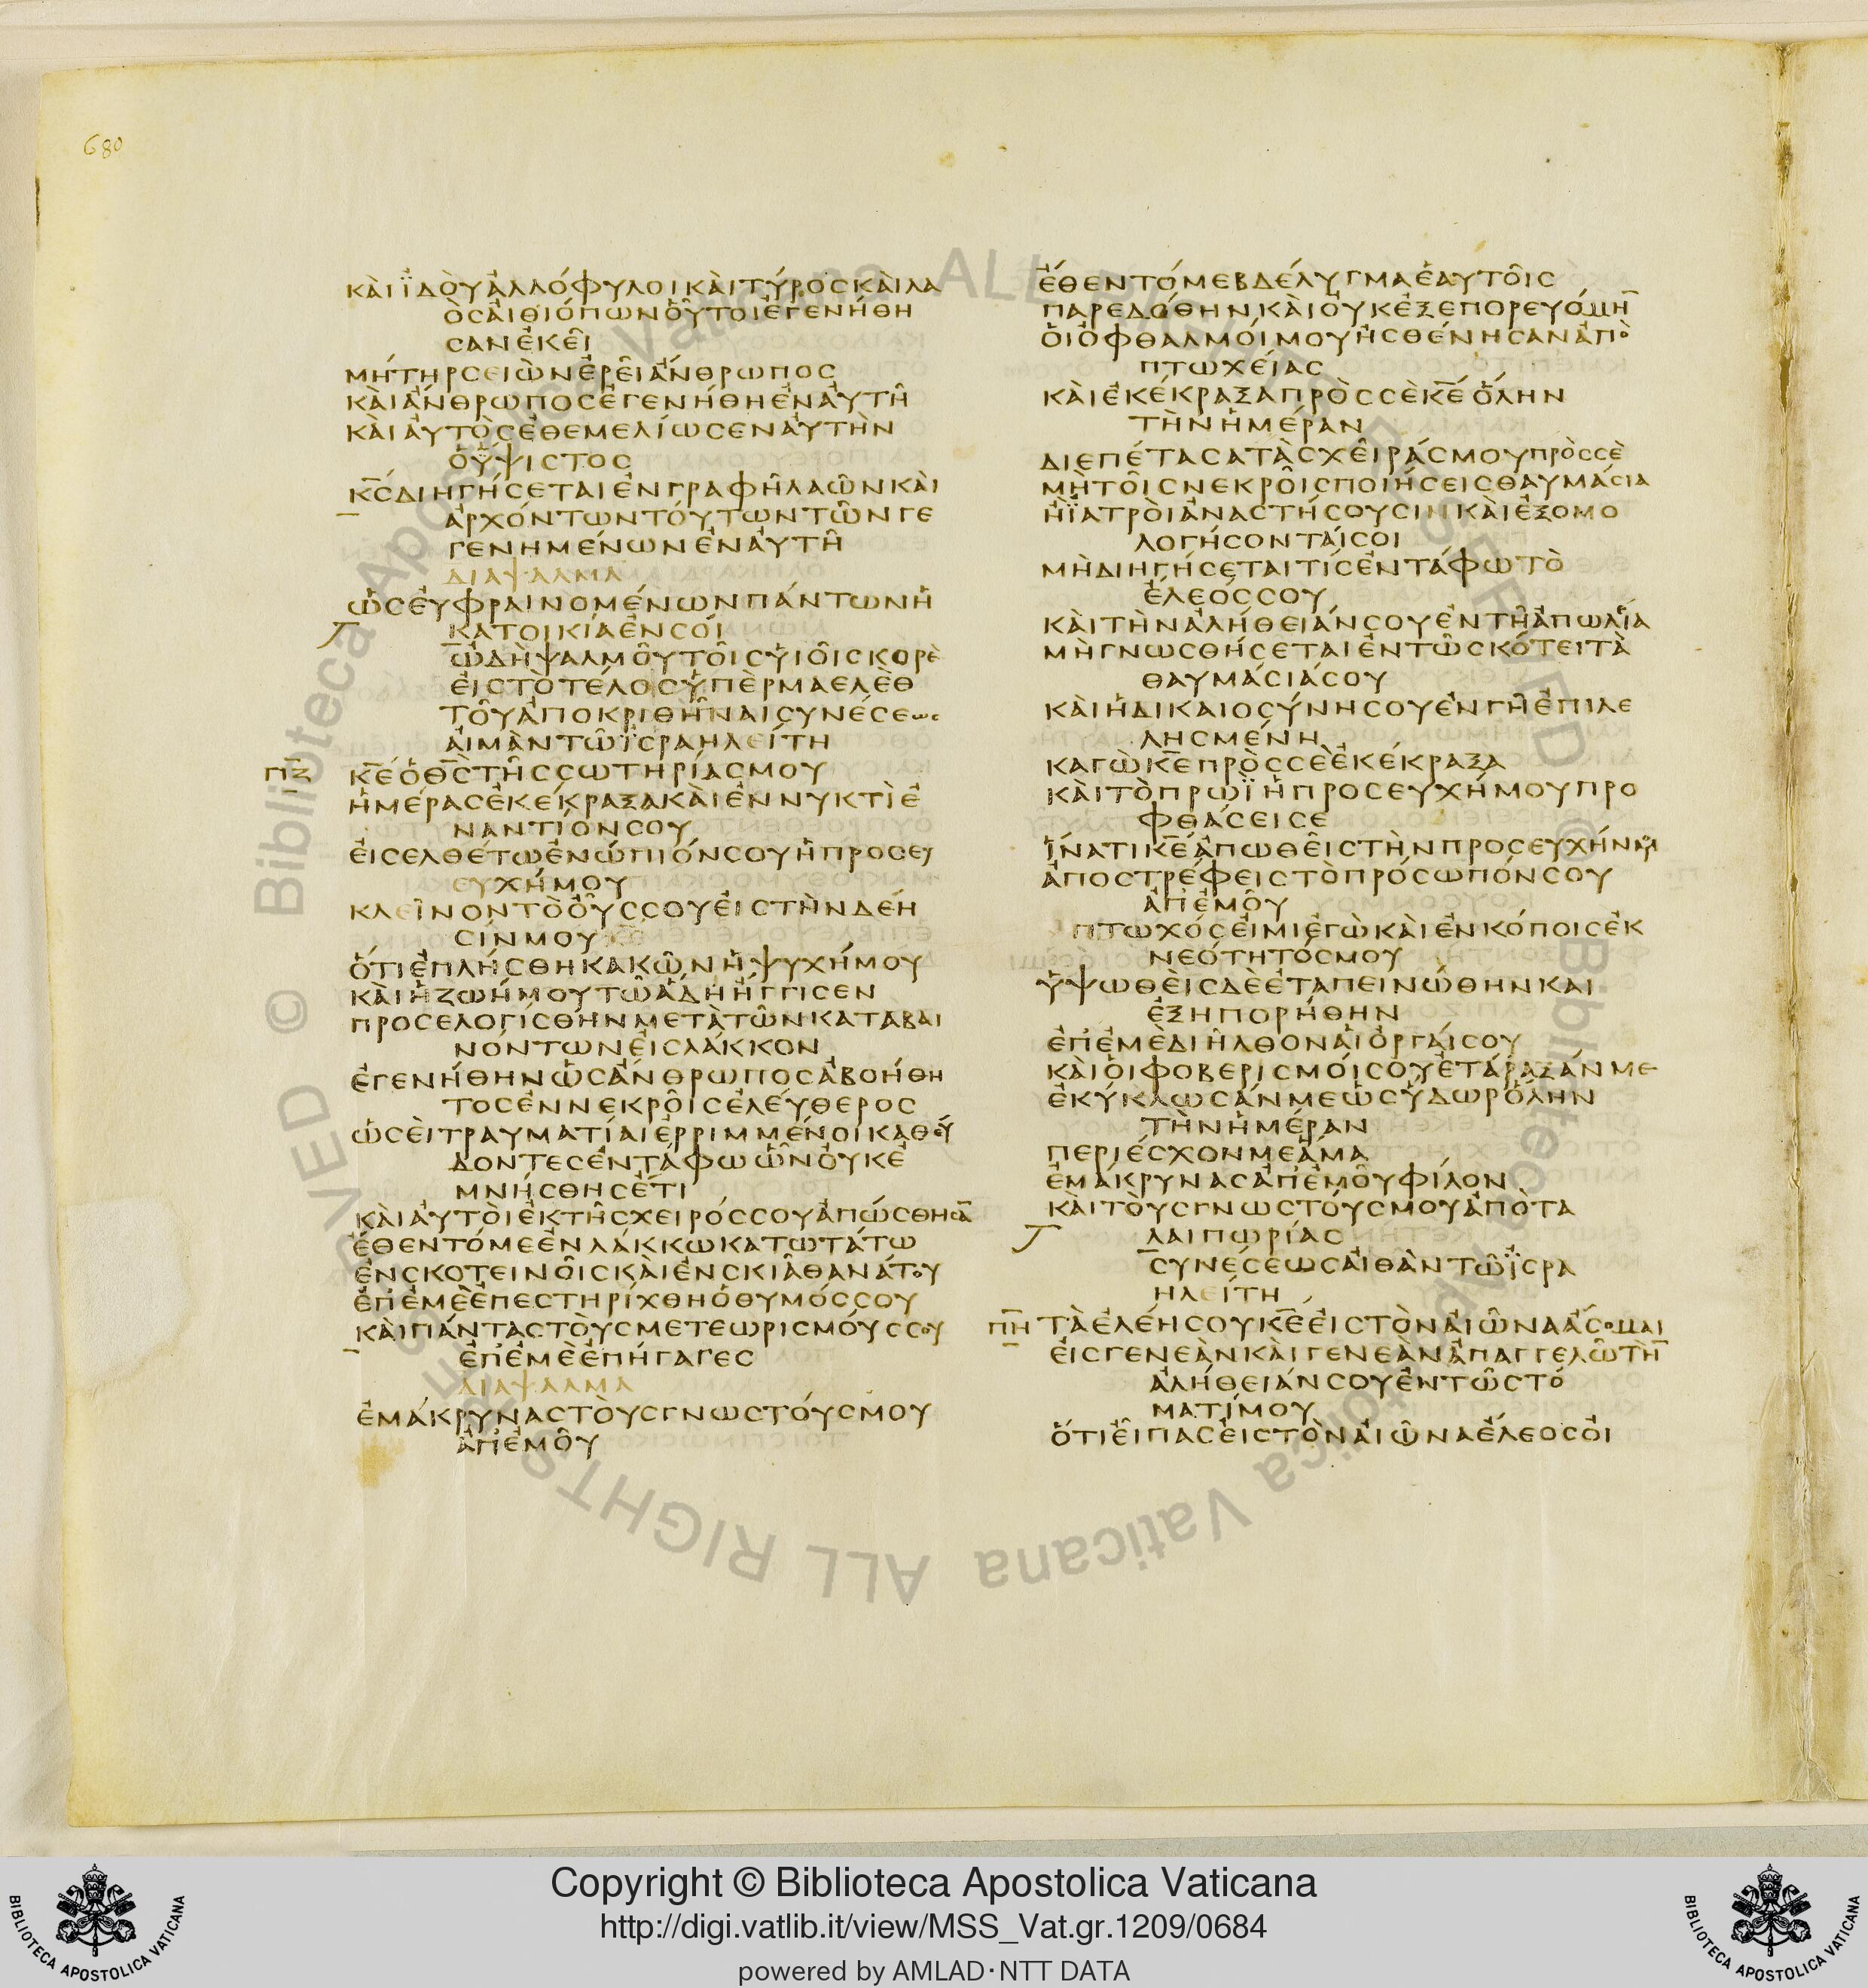 680
ΚΑΙΪΔΟΥΑΛΛΟΦΥΛΟΙΚΑΙΤΥΡΟϹΚΑΙΛΑ
ΟϹΑΙΘΙΟΠΩΝΟΥΤΟΙΕΓΕΝΗΘΗ
ϹΑΝΕΚΕΙ
ΜΗΤΗΡϹΕΙΩΝΕΡΕΙΑΝΘΡΩΠΟϹ
ΚΑΙΑΝΘΡΩΠΟϹΕΓΕΝΗΘΗΕΝΑΥΤΗ
ΚΑΙΑΥΤΟϹΕΘΕΜΕΛΙΩϹΕΝΑΥΤΗΝ
ΟΥΨΙϹΤΟϹ
Κ̅Ϲ̅ΔΙΗΓΗϹΕΤΑΙΕΝΓΡΑΦΗΛΑΩΝΚΑΙ
ΑΡΧΟΝΤΩΝΤΟΥΤΩΝΤΩΝΓΕ
ΓΕΝΗΜΕΝΩΝΕΝΑΥΤΗ
ΔΙΑΨΑΛΜΑ
ΩϹΕΥΦΡΑΙΝΟΜΕΝΩΝΠΑΝΤΩΝΗ
ΚΑΤΟΙΚΙΑΕΝϹΟΙ
ΩΔΗΨΑΛΜΟΥΤΟΙϹΥΙΟΙϹΚΟΡΕ
ΕΙϹΤΟΤΕΛΟϹΥΠΕΡΜΑΕΛΕΘ
ΤΟΥΑΠΟΚΡΙΘΗΝΑΙϹΥΝΕϹΕΩϹ
ΑΙΜΑΝΤΩΪϹΡΑΗΛΕΙΤΗ
Π̅Ζ̅ Κ̅Ε̅ΟΘ̅Ϲ̅ΤΗϹϹΩΤΗΡΙΑϹΜΟΥ
ΗΜΕΡΑϹΕΚΕΚΡΑΞΑΚΑΙΕΝΝΥΚΤΙΕ
ΝΑΝΤΙΟΝϹΟΥ
ΕΙϹΕΛΘΕΤΩΕΝΩΠΙΟΝϹΟΥΗΠΡΟϹΕΥ
ΕΥΧΗΜΟΥ
ΚΛΕΙΝΟΝΤΟΟΥϹϹΟΥΕΙϹΤΗΝΔΕΗ
ϹΙΝΜΟΥ
ΟΤΙΕΠΛΗϹΘΗΚΑΚΩΝΗΨΥΧΗΜΟΥ
ΚΑΙΗΖΩΗΜΟΥΤΩΑΔΗΗΓΓΙϹΕΝ
ΠΡΟϹΕΛΟΓΙϹΘΗΝΜΕΤΑΤΩΝΚΑΤΑΒΑΙ
ΝΟΝΤΩΝΕΙϹΛΑΚΚΟΝ
ΕΓΕΝΗΘΗΝΩϹΑΝΘΡΩΠΟϹΑΒΟΗΘΗ
ΤΟϹΕΝΝΕΚΡΟΙϹΕΛΕΥΘΕΡΟϹ
ΩϹΕΙΤΡΑΥΜΑΤΙΑΙΕΡΡΙΜΜΕΝΟΙΚΑΘΕΥ
ΔΟΝΤΕϹΕΝΤΑΦΩΩΝΟΥΚΕ
ΜΝΗϹΘΗϹΕΤΙ
ΚΑΙΑΥΤΟΙΕΚΤΗϹΧΕΙΡΟϹϹΟΥΑΠΩϹΘΗϹΑ̅
ΕΘΕΝΤΟΜΕΕΝΛΑΚΚΩΚΑΤΩΤΑΤΩ
ΕΝϹΚΟΤΕΙΝΟΙϹΚΑΙΕΝϹΚΙΑΘΑΝΑΤΟΥ
ΕΠΕΜΕΕΠΕϹΤΗΡΙΧΘΗΟΘΥΜΟϹϹΟΥ
ΚΑΙΠΑΝΤΑϹΤΟΥϹΜΕΤΕΩΡΙϹΜΟΥϹϹΟΥ
ΕΠΕΜΕΕΠΗΓΑΓΕϹ
ΔΙΑΨΑΛΜΑ
ΕΜΑΚΡΥΝΑϹΤΟΥϹΓΝΩϹΤΟΥϹΜΟΥ
ΑΠΕΜΟΥ
ΕΘΕΝΤΟΜΕΒΔΕΛΥΓΜΑΕΑΥΤΟΙϹ
ΠΑΡΕΔΟΘΗΝΚΑΙΟΥΚΕΞΕΠΟΡΕΥΟΜΗ̅
ΟΙΟΦΘΑΛΜΟΙΜΟΥΗϹΘΕΝΗϹΑΝΑΠΟ
ΠΤΩΧΕΙΑϹ
ΚΑΙΕΚΕΚΡΑΞΑΠΡΟϹϹΕΚ̅Ε̅ΟΛΗΝ
ΤΗΝΗΜΕΡΑΝ
ΔΙΕΠΕΤΑϹΑΤΑϹΧΕΙΡΑϹΜΟΥΠΡΟϹϹΕ
ΜΗΤΟΙϹΝΕΚΡΟΙϹΠΟΙΗϹΕΙϹΘΑΥΜΑϹΙΑ
ΗΪΑΤΡΟΙΑΝΑϹΤΗϹΟΥϹΙΝΚΑΙΕΞΟΜΟ
ΛΟΓΗϹΟΝΤΑΙϹΟΙ
ΜΗΔΙΗΓΗϹΕΤΑΙΤΙϹΕΝΤΑΦΩΤΟ
ΕΛΕΟϹϹΟΥ
ΚΑΙΤΗΝΑΛΗΘΕΙΑΝϹΟΥΕΝΤΗΑΠΩΛΙΑ
ΜΗΓΝΩϹΘΗϹΕΤΑΙΕΝΤΩϹΚΟΤΕΙΤΑ
ΘΑΥΜΑϹΙΑϹΟΥ
ΚΑΙΗΔΙΚΑΙΟϹΥΝΗϹΟΥΕΝΓΗΕΠΙΛΕ
ΛΗϹΜΕΝΗ
ΚΑΓΩΚ̅Ε̅ΠΡΟϹϹΕΕΚΕΚΡΑΞΑ
ΚΑΙΤΟΠΡΩΪΗΠΡΟϹΕΥΧΗΜΟΥΠΡΟ
ΦΘΑϹΕΙϹΕ
ΪΝΑΤΙΚ̅Ε̅ΑΠΩΘΕΙϹΤΗΝΠΡΟϹΕΥΧΗΝΜΟΥ
ΑΠΟϹΤΡΕΦΕΙϹΤΟΠΡΟϹΩΠΟΝϹΟΥ
ΑΠΕΜΟΥ
ΠΤΩΧΟϹΕΙΜΙΕΓΩΚΑΙΕΝΚΟΠΟΙϹΕΚ
ΝΕΟΤΗΤΟϹΜΟΥ
ΥΨΩΘΕΙϹΔΕΕΤΑΠΕΙΝΩΘΗΝΚΑΙ
ΕΞΗΠΟΡΗΘΗΝ
ΕΠΕΜΕΔΙΗΛΘΟΝΑΙΟΡΓΑΙϹΟΥ
ΚΑΙΟΙΦΟΒΕΡΙϹΜΟΙϹΟΥΕΤΑΡΑΞΑΝΜΕ
ΕΚΥΚΛΩϹΑΝΜΕΩϹΥΔΩΡΟΛΗΝ
ΤΗΝΗΜΕΡΑΝ
ΠΕΡΙΕϹΧΟΝΜΕΑΜΑ
ΕΜΑΚΡΥΝΑϹΑΠΕΜΟΥΦΙΛΟΝ
ΚΑΙΤΟΥϹΓΝΩϹΤΟΥϹΜΟΥΑΠΟΤΑ
ΛΑΙΠΩΡΙΑϹ
ϹΥΝΕϹΕΩϹΑΙΘΑΝΤΩΪϹΡΑ
ΗΛΕΙΤΗ
Π̅Η̅ ΤΑΕΛΕΗϹΟΥΚ̅Ε̅ΕΙϹΤΟΝΑΙΩΝΑΑϹΟΜΑΙ
ΕΙϹΓΕΝΕΑΝΚΑΙΓΕΝΕΑΝΑΠΑΓΓΕΛΩΤΗ̅
ΑΛΗΘΕΙΑΝϹΟΥΕΝΤΩϹΤΟ
ΜΑΤΙΜΟΥ
ΟΤΙΕΙΠΑϹΕΙϹΤΟΝΑΙΩΝΑΕΛΕΟϹΟΙ
Copyright © Biblioteca Apostolica Vaticana
http://digi.vatlib.it/view/MSS_Vat.gr.1209/0684
powered by AMLAD·NTT DATA
BIBLIOTECA APOSTOLICA VATICANA
BIBLIOTECA APOSTOLICA VATICANA